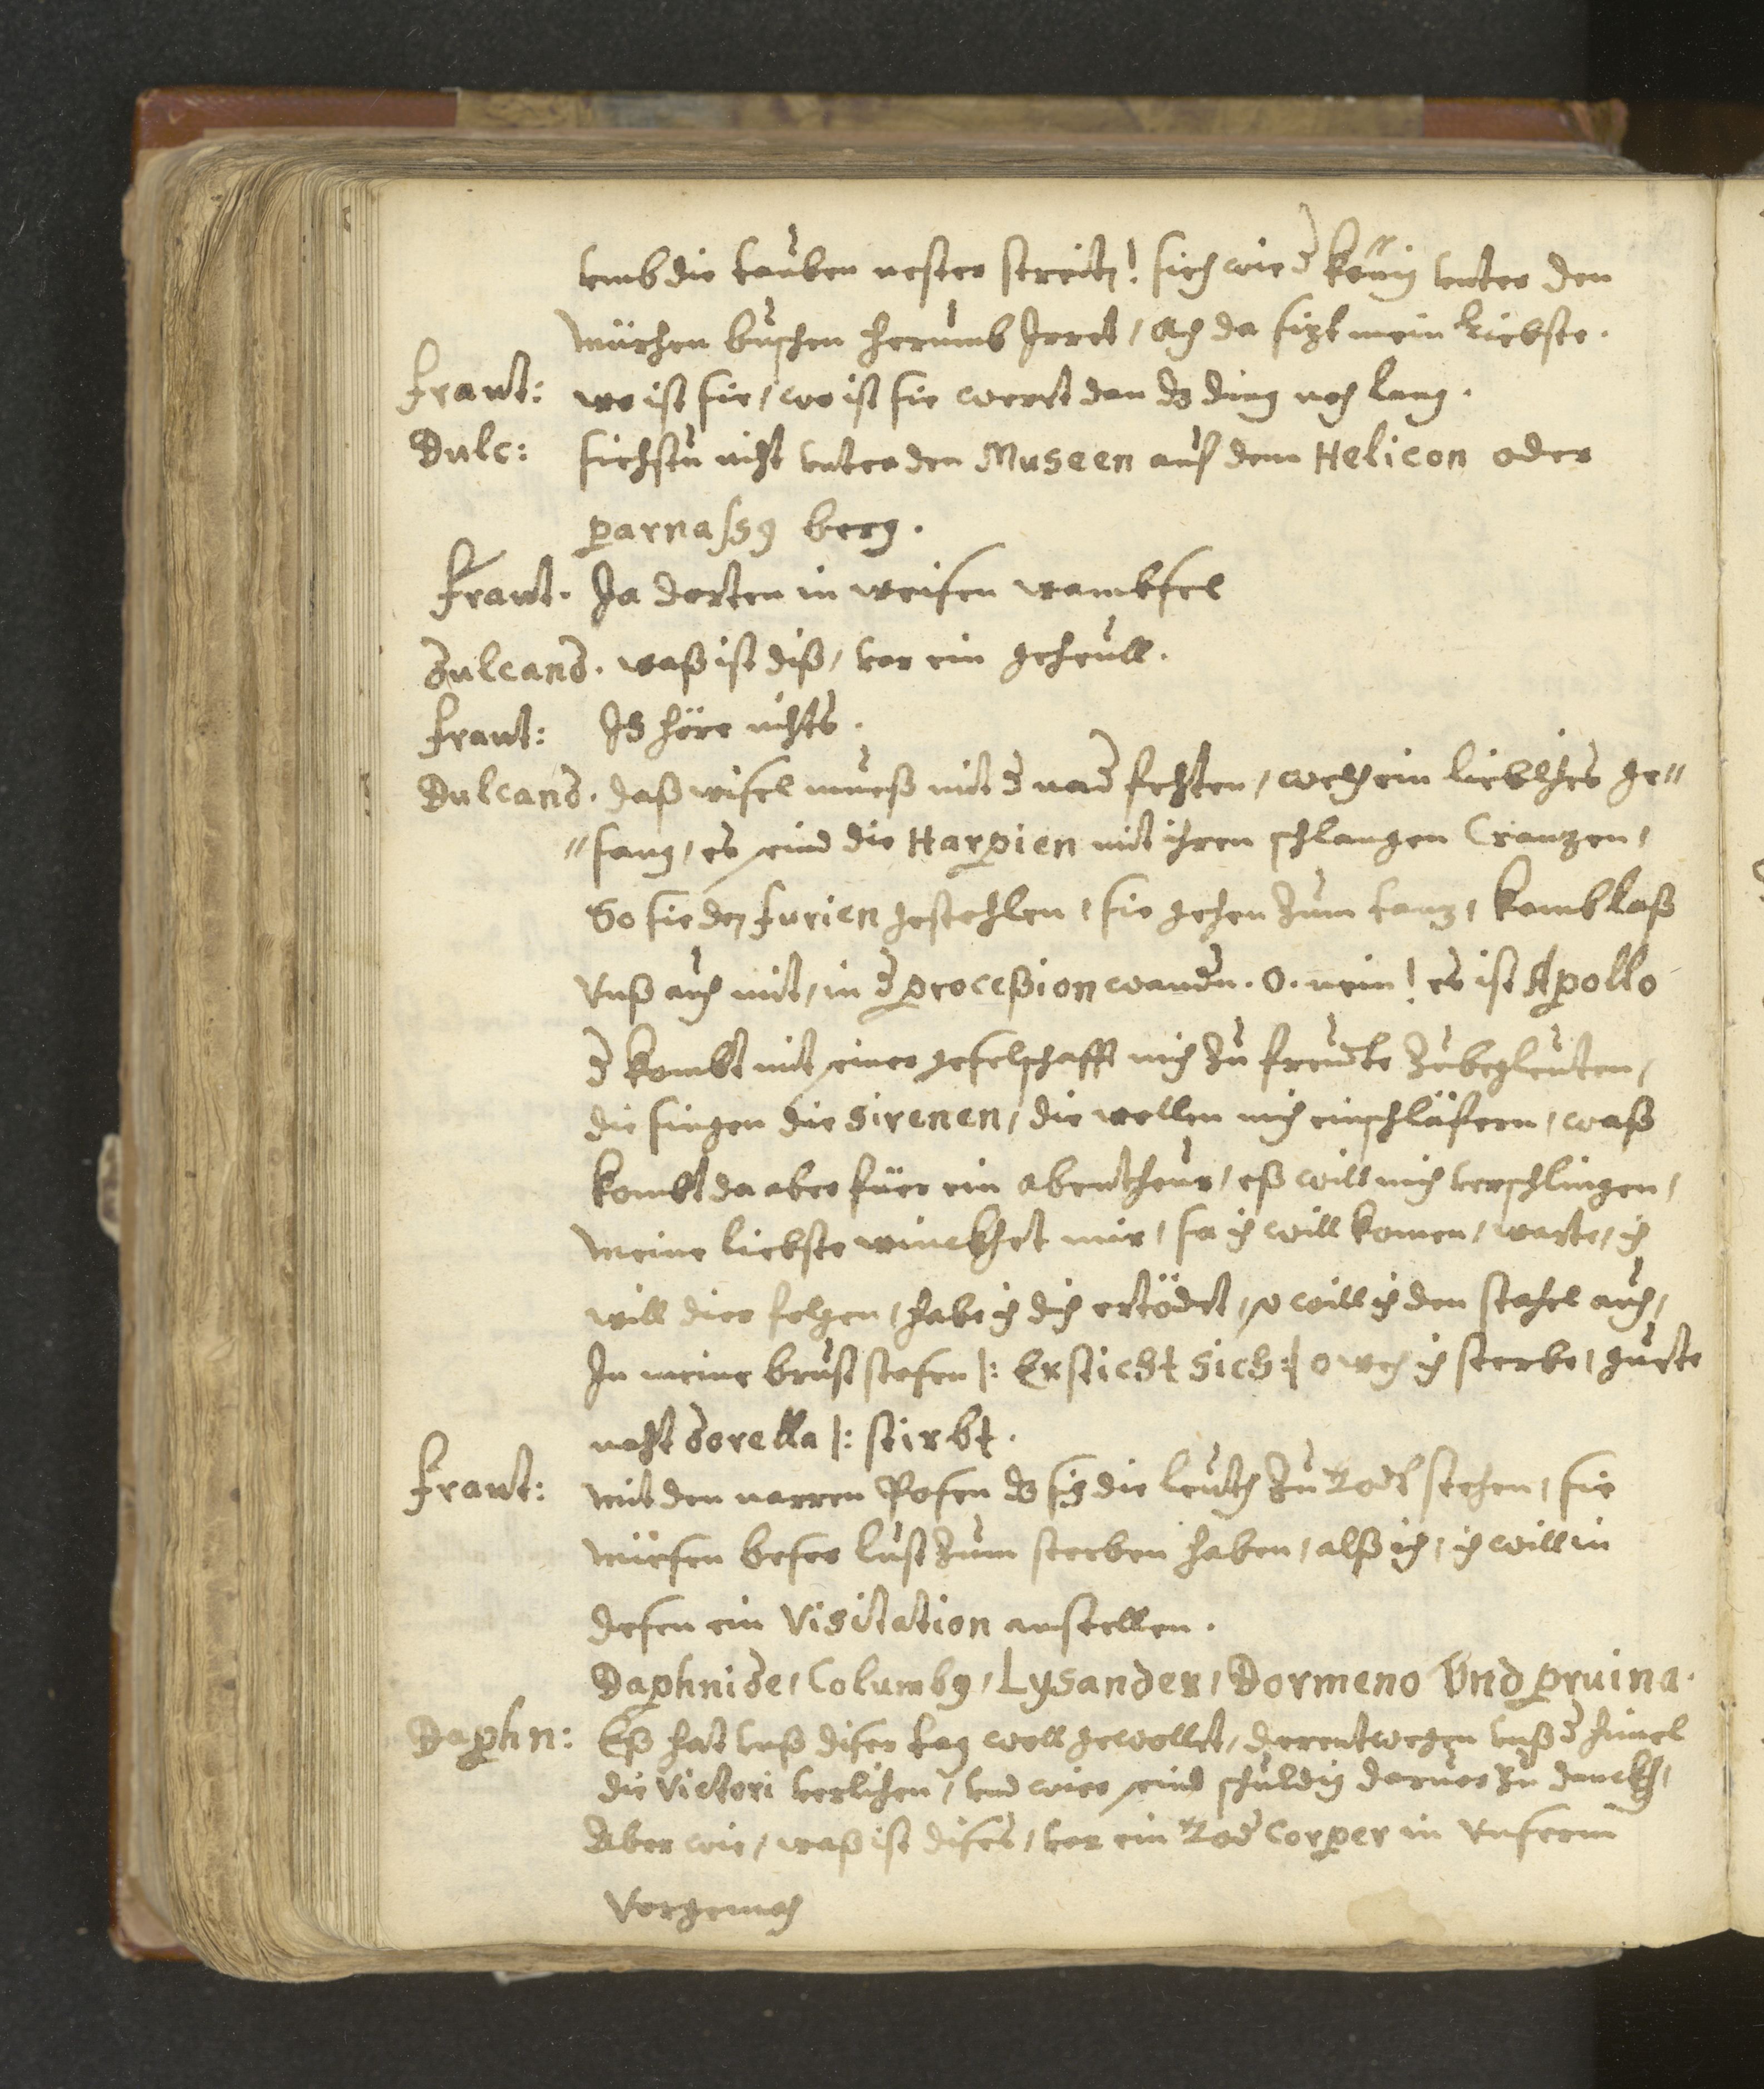 vmb die tauben nester streith! sich wie d König vnter den
mürhen buschen herumb Irret / Ach da sizt mein Liebste.
Frant: wo ist sie / wo ist sie werrt dan dz ding noch lang.
Dulc: sichstu nicht vnter den Museen auf dem Helicon oder
parnaſsg berg.
Frant. Ja dorten in weisen wambsel
Dulcand. waß ist diß / vor ein geheull.
Frant: Ich höre nichts.
Dulcand. daß wisel mueß mit d nad fechten / welch ein liebliches ge〃
〃sang / es seind die Harpien mit ihren schlangen Cränzen /
So sie den furien gestohlen / sie gehen zum tanz / komb laß
Vnß auch mit / in d proceßion wandn. O. nein! es ist Apollo
d kombt mit seiner geselschafft mich zu freudte zubegleuten /
die singen die Sirenen / die wollen mich einschläfern / waß
kombt da aber füer ein abentheur / eß will mich verschlingen /
meine liebste winckhet mir / sa ich will komen / warte / ich
will dier folgen / habe ich dich ertödet / so will ich den stahel auch /
In meine brust stosen |: Ersticht sich :| o weh ich sterbe / guete
nacht Dorella |: stirbt.
Frant: mit den narren Posen dz sich die leuth zu Todt stechen / sie
müesen beser lust zum sterben haben / alß ich / ich will in
desen ein Visitation anstellen.
Daphnide / Columbg / Lysander / Dormeno Vnd pruina.
Daphn: Eß hat vnß diser tag woll gewollet / derentwegen vnß d himel
die Victori verlihen / vnd wier seind schuldig daruor zu danckh /
Aber wie / waß ist dises / vor ein Tod Corper in Vnserm
Vorgemach